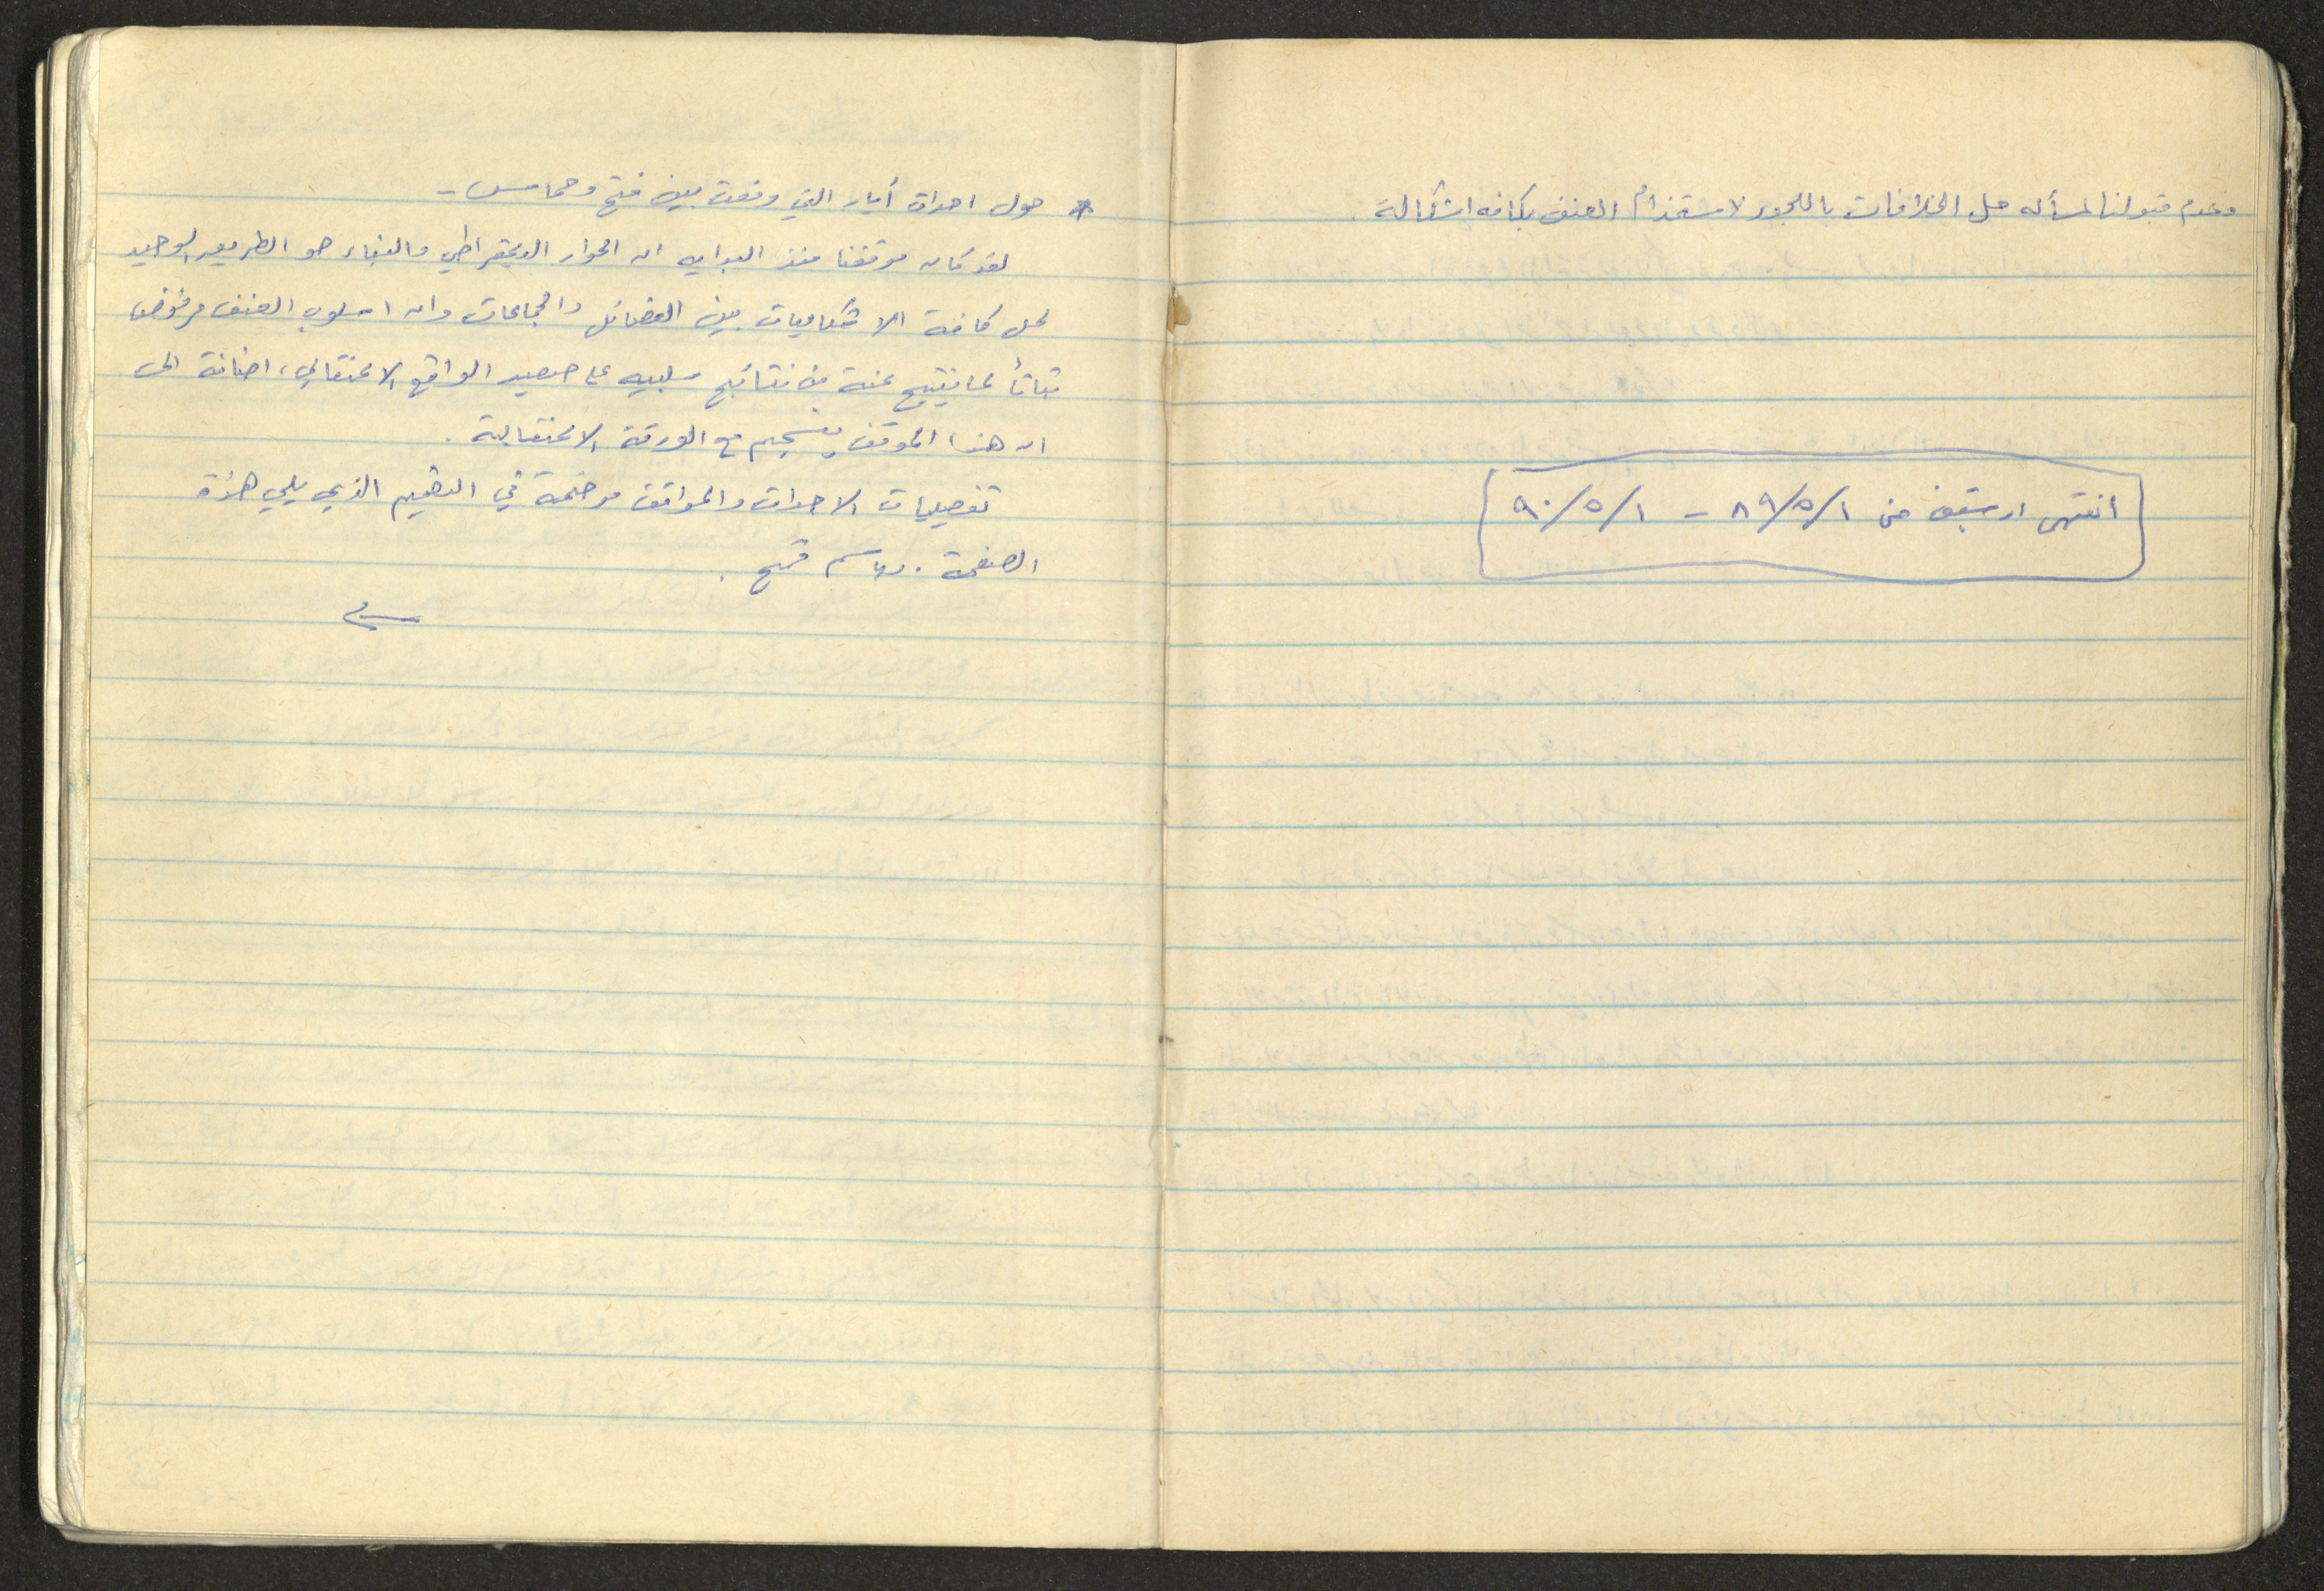 وعدم قبولنا لمسأله حل الخلافات باللجوء لاستخدام العنف بكافه اشكالة.
انتهى ارشيف من ٨٩/٥/١ - ٩٠/٥/١
* حول احداث أيار التي وقعت بين فتح وحماس -
لقد كان موقفنا منذ البدايه ان الحوار الديمقراطي والبناء هو الطريق الوحيد
لحل كافة الاشكاليات بين الفصائل والجماعات وان اسلوب العنف مرفوض
بتاتاً لما ينتج عنة من نتائج سلبيه على صعيد الواقع الاعتقالي، اضافة الى
ان هذا الموقف ينسجم مع الورقة الاعتقالية.
تفصيليات الاحداث والمواقف موضحة في التقييم الذي يلي هذة
الصفحة. وباسم فتح.